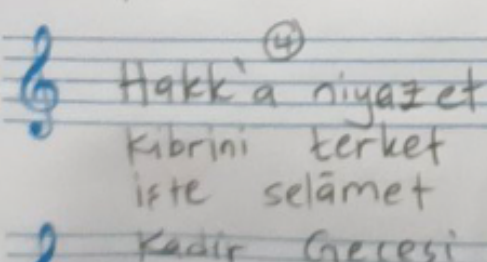 4
Hakk'a niyaz et
kibrini terket
işte selâmet
Kadir Gecesi